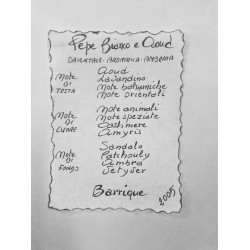 Pepe Bianco e Oud
ORIENTALE-AROMATICA-AMBRATA
NOTE DI TESTA
Aoud
Lavandino
Note balsamiche
Note orientali
NOTE DI CUORE
Note animali
Note speziate
Cashmere
Amyris
NOTE DI FONDO
Sandalo
Patchouly
Ambra
Vetyver
Barrique
2005